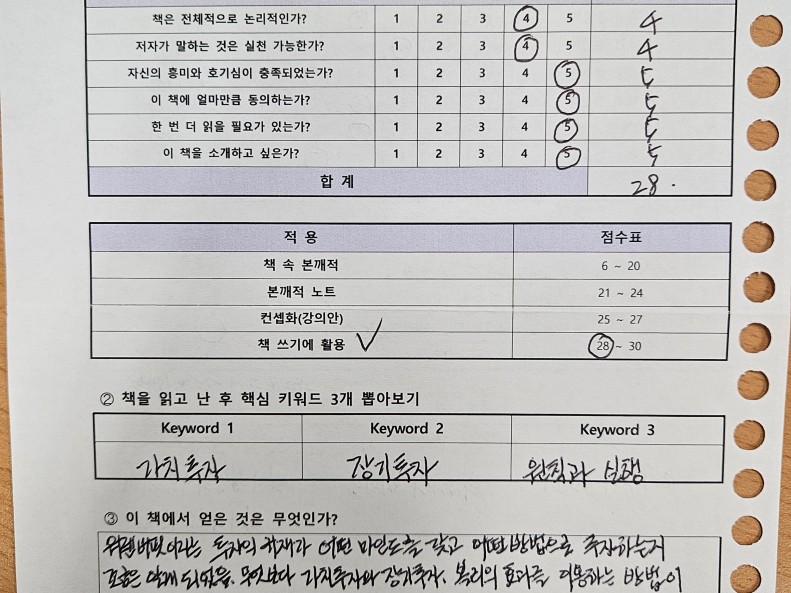 책은 전체적으로 논리적인가? 1 2 3 4 5 4
저자가 말하는 것은 실천 가능한가? 1 2 3 4 5 4
자신의 흥미와 호기심이 충족되었는가? 1 2 3 4 5 5
이 책에 얼마만큼 동의하는가? 1 2 3 4 5 5
한 번 더 읽을 필요가 있는가? 1 2 3 4 5 5
이 책을 소개하고 싶은가? 1 2 3 4 5 5
합 계 28.
적 용 점수표
책 속 본깨적 6 ~ 20
본깨적 노트 21 ~ 24
컨셉화(강의안) 25 ~ 27
책 쓰기에 활용 28 ~ 30
② 책을 읽고 난 후 핵심 키워드 3개 뽑아보기
Keyword 1 Keyword 2 Keyword 3
가치투자 장기투자 원칙과 실행
③ 이 책에서 얻은 것은 무엇인가?
워렌버핏이라는 투자의 귀재가 어떤 마인드를 갖고 어떤 방법으로 투자하는지
알게 되었음. 무엇보다 가치투자와 장기투자, 복리의 효과를 이용하는 방법이